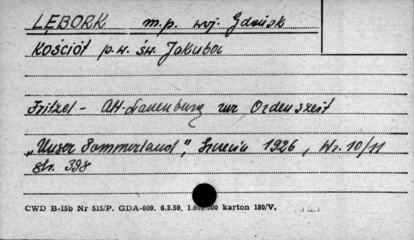 LĘBORK m.p. woj. Gdańsk
KOŚCIÓŁ p.w. św. Jakuba
Fritzel - Alt-Lauenburg zur Ordenszeit
"Unser Pommerland", Szczecin 1926, Nr. 10/11
str. 398
CWD B-15b Nr 515/P. GDA-809. 6.3.59. 1.000.000 karton 180/V.